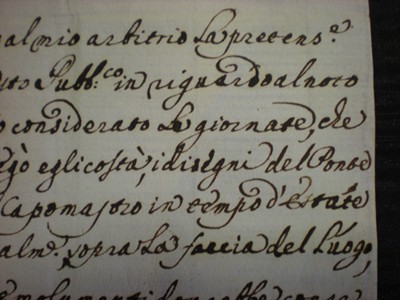 al mio arbitrio La pretens.e
Pubb.co in riguardo al noto
considerato Le giornate, che
egli costà, i disegni del Ponte
Capomastro in tempo d'Estate
alm.e sopra La faccia del Luogo,